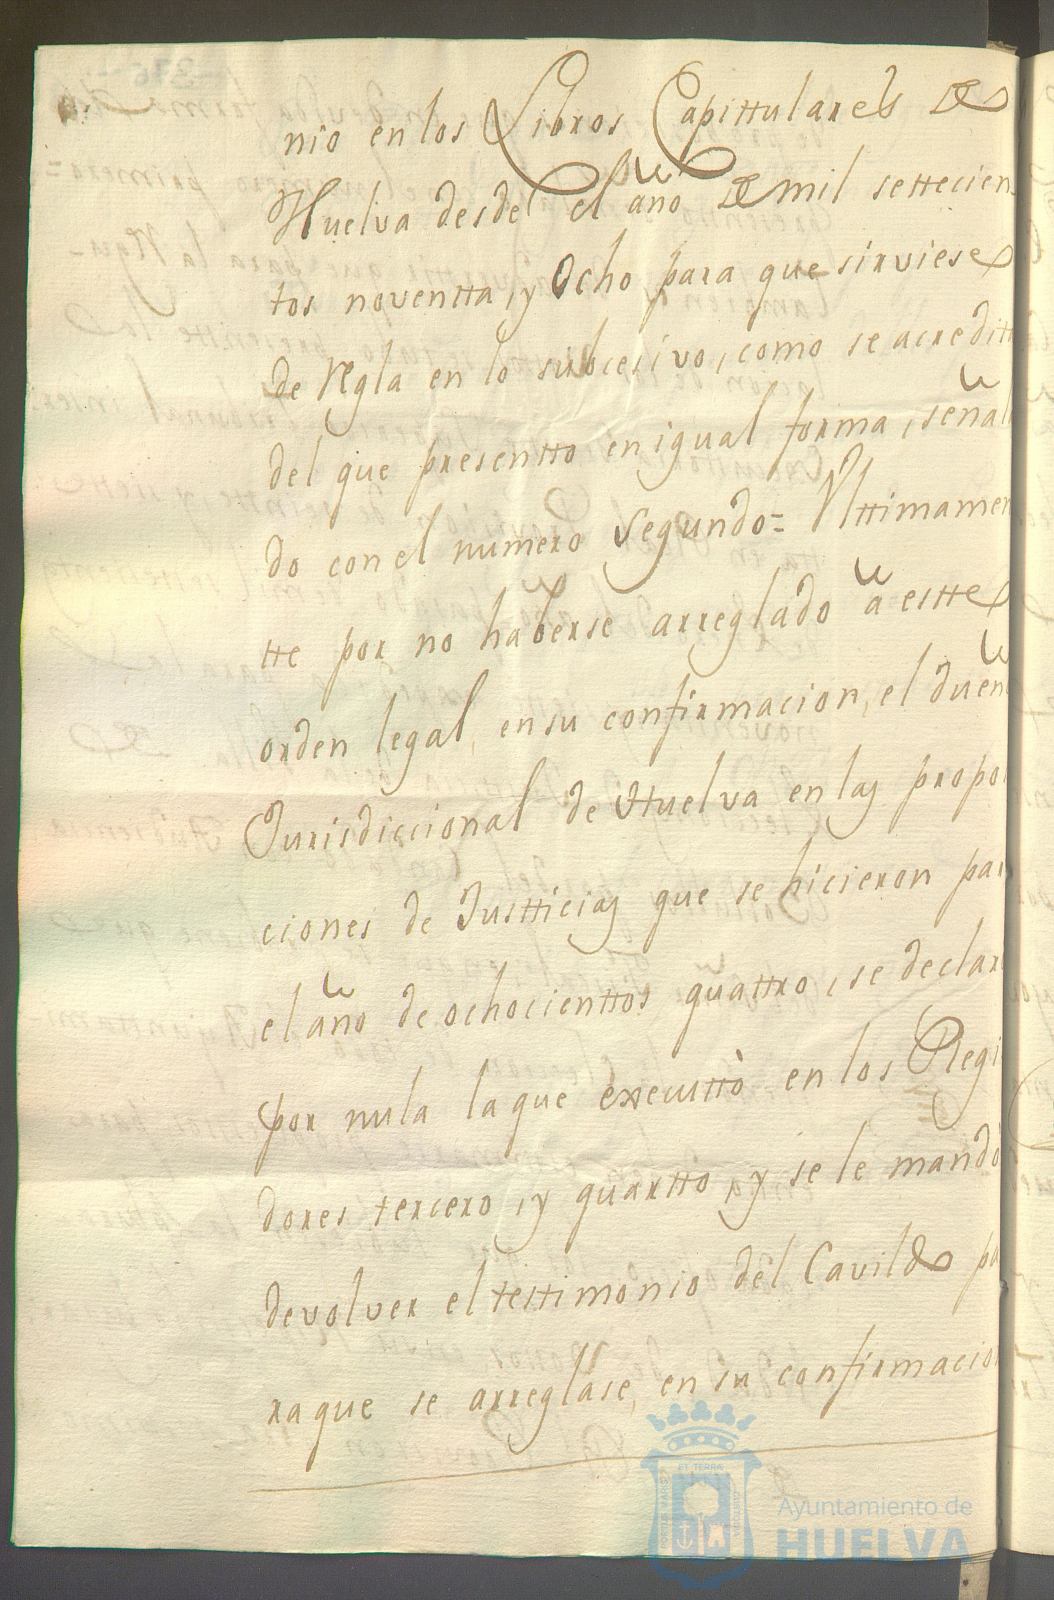 nio en los Libros Capittulares de
Huelva desde el año de mil settecien
tos noventta, y Ocho para que sirviese
de Regla en lo subcesivo, como se acreditt
del que presentto en igual forma, señal
do con el numero Segundo= Ulttimamen
tte por no haberse arreglado â estte
orden legal, en su confirmacion, el dueño
Jurisdiccional de Huelva en las propo
ciones de Justticias que se hicieron par
el año de ochocienttos quattro, se declar
por nula la que executtò en los Regi
dores tercero, y quartto, y se le mandò
devolver el testtimonio del Cavildo pa
ra que se arreglase, en su confirmacion
ET TERRA
Ayuntamiento de
HUELVA